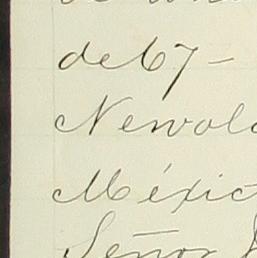 de 67-
Newol
Méxic
Señor